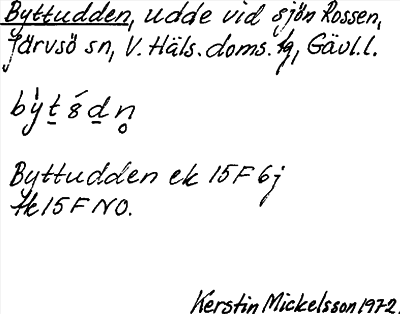 Byttudden, udde vid sjön Rossen,
Järvsö sn, V. Häls. doms. tg, Gävl.l.
Byttudden ek 15 F 6j
tk 15 F NO.
Kerstin Mickelsson 1972